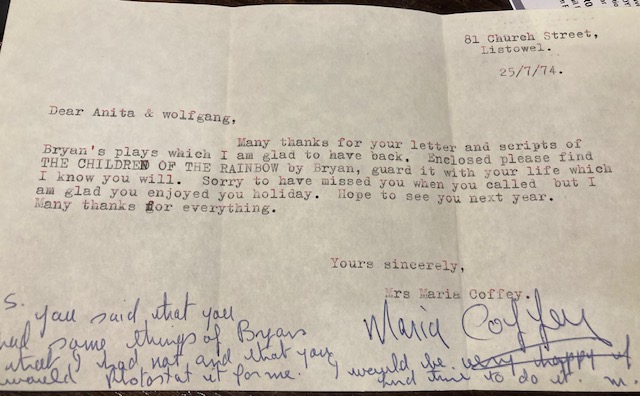 81 Church Street,
Listowel.
25/7/74.
Dear Anita & wolfgang,
Many thanks for your letter and scripts of
Bryan's plays which I am glad to have back. Enclosed please find
THE CHILDREN OF THE RAINBOW by Bryan, guard it with your life which
I know you will. Sorry to have missed you when you called but I
am glad you enjoyed you holiday. Hope to see you next year.
Many thanks for everything.
Yours sincerely,
Mrs Maria Coffey.
Maria Coffey
S. you said that you
had some things of Bryans
that I had not and that you
would Photostat it for me. I would be very happy if
find time to do it. M.